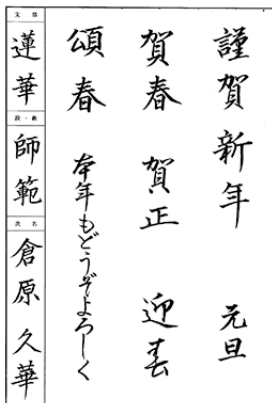 謹賀新年 元旦
賀春 賀正 迎春
頌春 本年もどうぞよろしく
支部
蓮華
段・級
師範
氏名
倉原久華